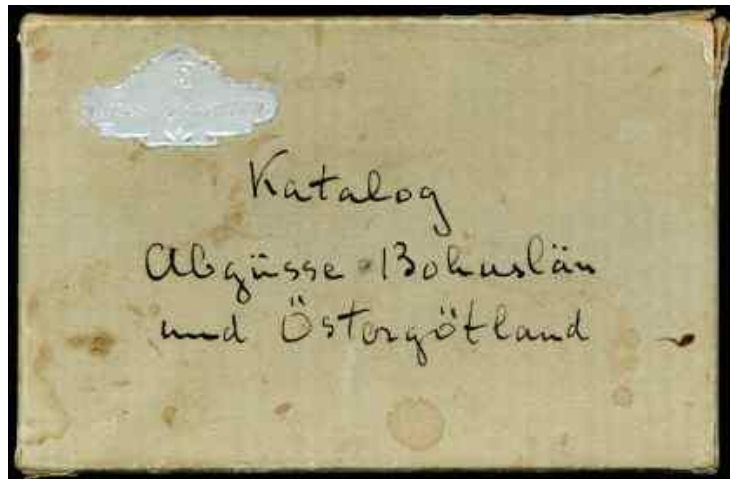 Katalog
Abgüsse Bohuslän
und Östergötland